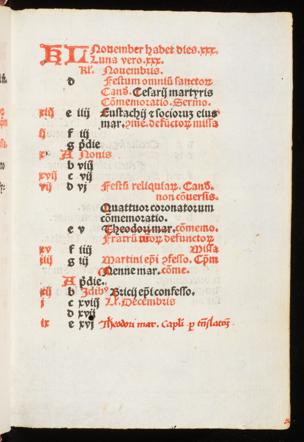 KL November habet dies.xxx.
Luna vero.xxx.
Kl. Novembris.
d Festum omniū sanctorꝝ
Canō. Cesarij martyris
Cōmemoratio. Sermo.
xiij e iiij Eustachij ⁊ socioruꝫ eius
mar. defūctoꝝ missa
ij f iij
g p̄die.
x A Nonis
b viij
xvij c vij
vij d vj Festū reliquiaꝝ. Canō.
non cōversis.
Quattuor coronatorum
cōmemoratio.
e v Theodorj mar. cōmemo.
Fratrū nr̄orꝫ defunctoꝝ
xv f iiij Missa
iiij g iij Martini ep̄i ꝯfesso. Cōm
Menne mar. cōme.
A p̄die.
xij b Idibꝰ Bricij ep̄i confesso.
j c xviij kl. Decembris
d xvij
ix e xvj Theodori mar. Capli